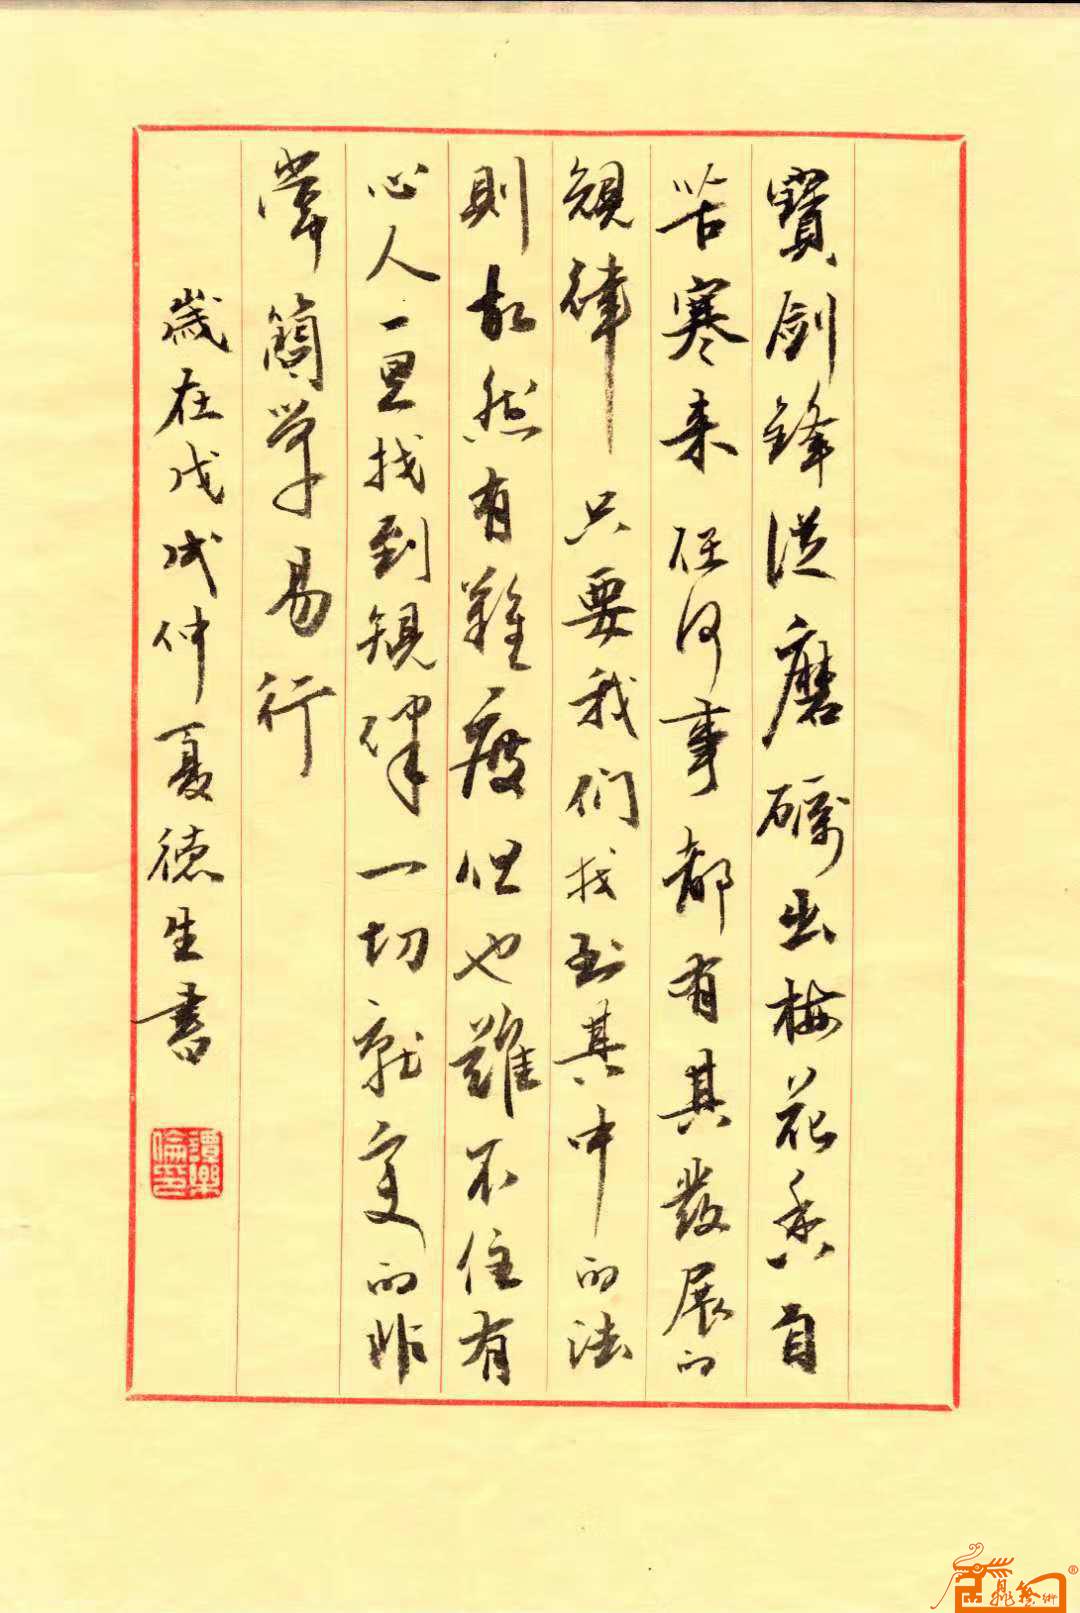 寶劍鋒從磨礪出梅花香自
苦寒来任何事都有其發展的
規律只要我们找到其中的法
則故然有難度但也難不住有
心人一旦找到規律一切就变的非
常簡单易行
歲在戊戌仲夏德生書
譚樂
倫印